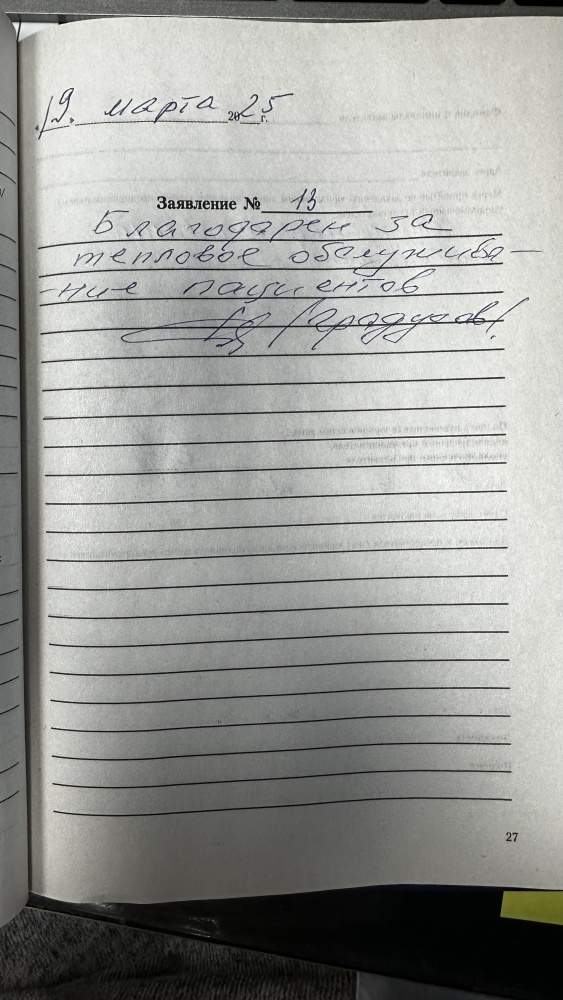 19. марта 2025 г.
Заявление № 13
Благодарен за
тепловое обслужива-
-ние пациентов
/Градусов/
27